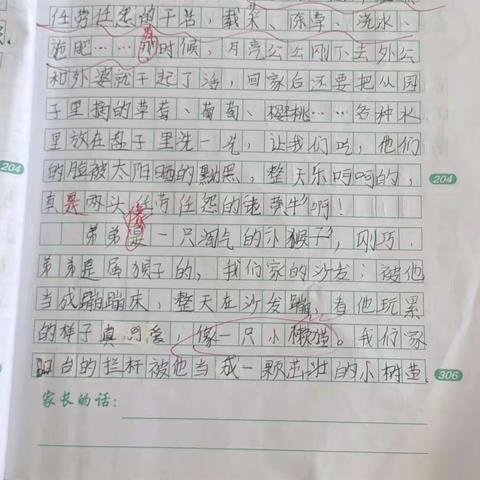 任劳任怨的干活，栽菜、除草、浇水、
施肥……有时候，月亮公公刚下去外公
和外婆就干起了活，回家后还要把从园
子里摘的草莓、葡萄、樱桃……各种水
果放在盘子里洗一洗，让我们吃，他们
的脸被太阳晒的黝黑，整天乐呵呵的，
真是两头任劳任怨的老黄牛啊！
弟弟像一只淘气的小猴子，刚巧
弟弟是属猴子的，我们家的沙发：被他
当成蹦蹦床，整天在沙发蹦，看他玩累
的样子真可爱，像一只小懒猫。我们家
阳台的栏杆被他当成一颗茁壮的小树苗
204
204
306
家长的话：